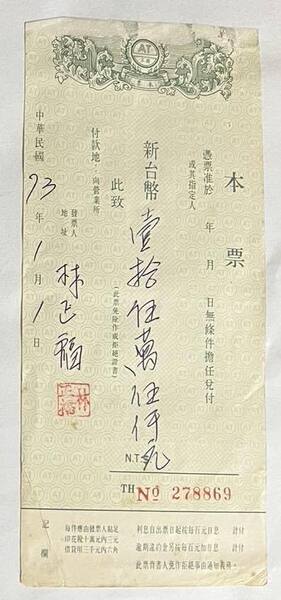 AT
本票
憑票准於 年 月 日無條件擔任兌付
或其指定人
新台幣 壹拾伍萬伍仟元
N.T.$
此致
(此票免除作成拒絕證書)
付款地 向營業所
發票人 林正福
地址
林正福
中華民國 73 年 1 月 1 日
TH No 278869
利息自出票日起按每百元日息 計付
逾期違約金另按每百元加日息 計付
此票背書人免作拒絕事由通知義務
每件應由發票人黏足
印花稅十萬元內三元
借貸用三千元內六角
記
欄